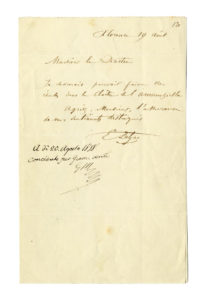 Florence 19 août
Monsieur le Directeur
Je désirerais pouvoir faire des
études dans le cloître de l'annunziata
Agréez, Monsieur, l'assurance
de mes sentiments distingués
A dì 20 Agosto
concesso per giorni venti